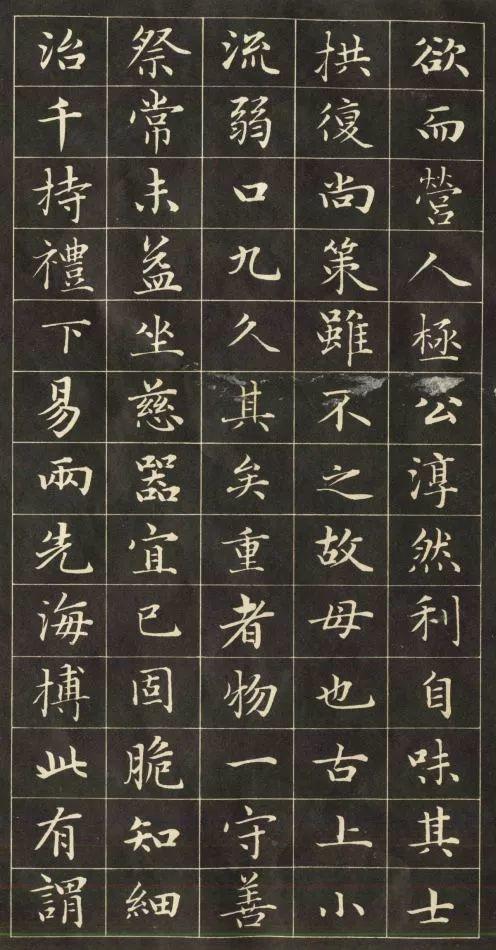 欲而營人極公淳然利自味其士
拱復尚策雖不之故毋也古上小
流弱口九久其矣重者物一守善
祭常未益坐慈器宜已固脆知細
治千持禮下易兩先海榑此有謂